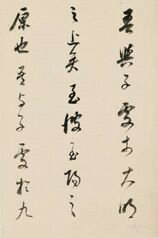 吾與子處於大明
之上矣至彼至陽之
原也吾与子處於九